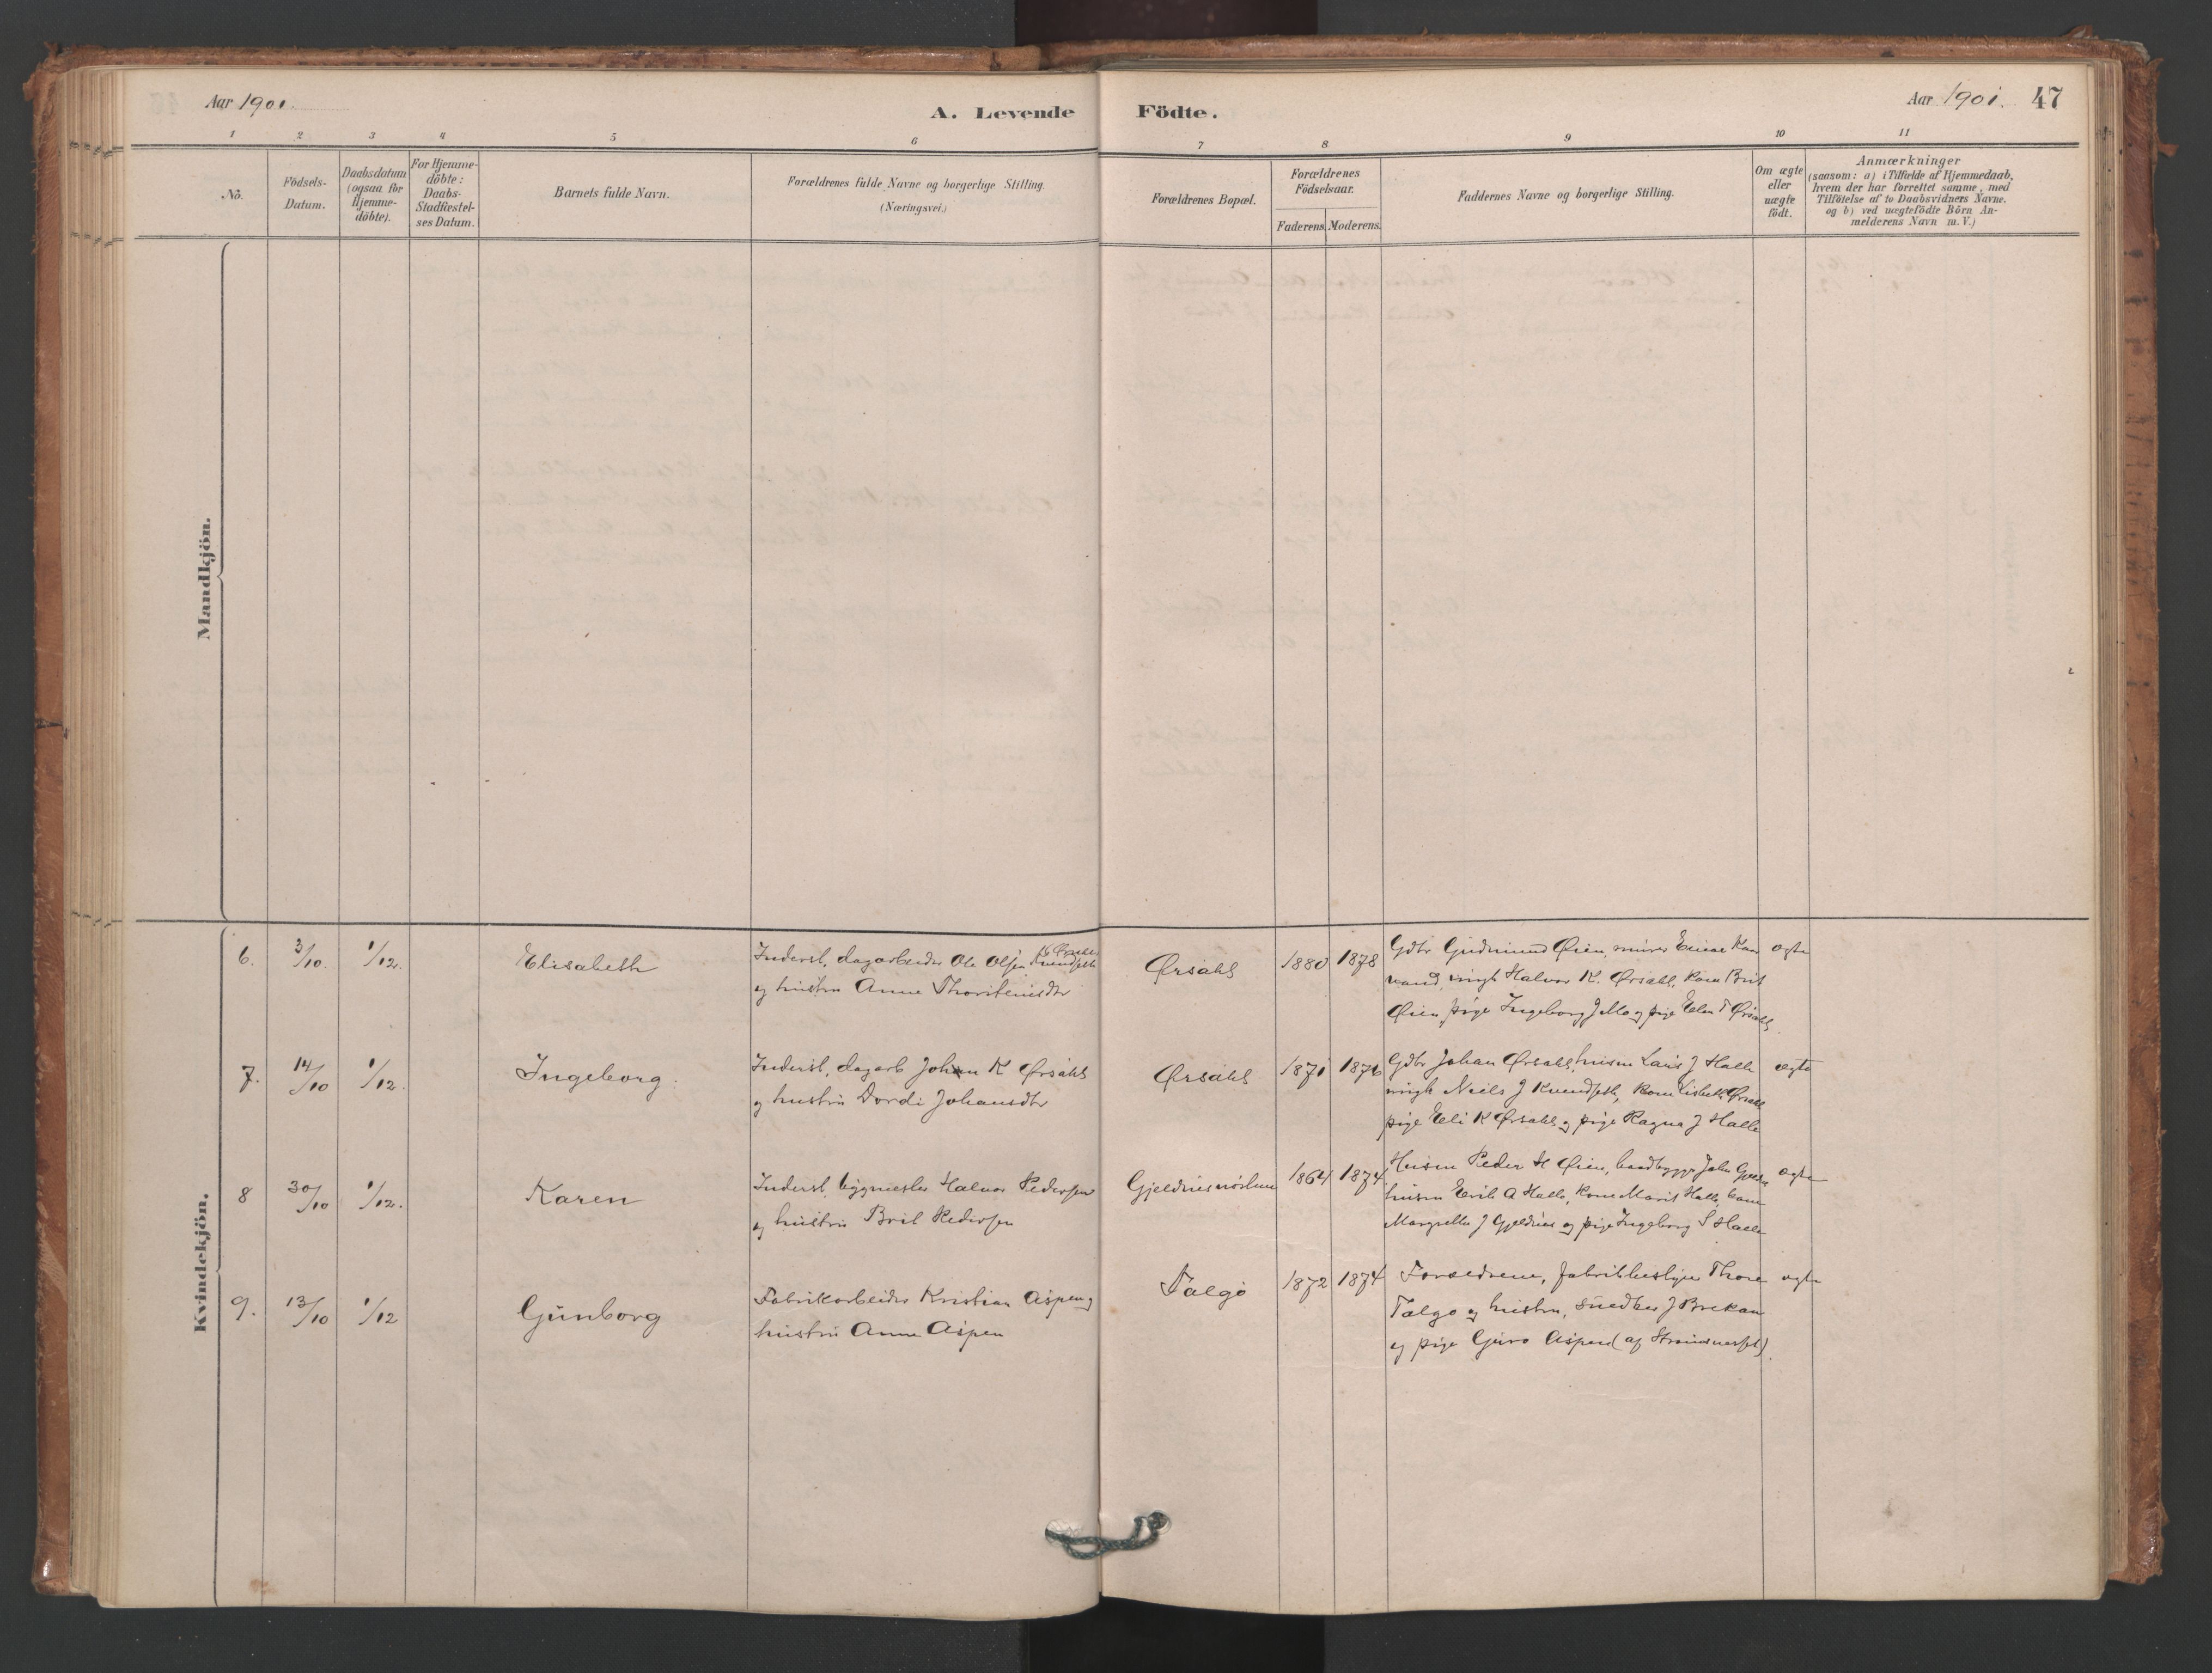 Aar 1901.
A. Levende Födte.
Aar 1901. 47
1 2 3 4 5 6 7 8 9 10 11
No.
Födsels-
Datum.
Daabsdatum
(ogsaa for
Hjemme-
döbte).
For Hjemme-
döbte:
Daabs-
Stadfæstel-
ses Datum.
Barnets fulde Navn.
Forældrenes fulde Navne og borgerlige Stilling.
(Næringsvei.)
Forældrenes Bopæl.
Forældrenes
Födselsaar.
Faderens. Moderens.
Faddernes Navne og borgerlige Stilling.
Om ægte
eller
uægte
födt.
Anmærkninger
(saasom: a) i Tilfælde af Hjemmedaab,
hvem der har forrettet samme, med
Tilföielse af to Daabsvidners Navne.
og b) ved uægtefödte Börn An-
melderens Navn m.V.)
Mandkjön.
Kvindekjön.
6. 3/10. 1/12. Elisabeth
Inderst, dagarbeider Ole Olsen Kvendseth
og hustru Anne Thorsteinsdtr
Ørsahl 1880 1878
Gdbr Gudmund Øien, murer Einar Kan
vand, ungk Halvor K. Ørsahl, kone Brit
Øien pige Ingeborg J Mo og pige Elen T Ørsahl.
ægte
7. 14/10 1/12. Ingeborg.
Inderst, dagarb Johan K Ørsahl
og hustru Dordi Johansdtr
Ørsahl 1871 1876
Gdbr Johan Ørsahl, husm Lars J Halle
ungk Niels J Kvendseth, kone Lisbeth Ørsahl
pige Eli K Ørsahl og pige Ragna J Halle
ægte
8 30/10 1/12. Karen
Inderst bygmester Halvor Pedersen
og hustru Brit Pedersen
Gjeldnes 1864 1874
Husm Peder H Øien, baadbygger John
husm Erik A Halle, kone Marit Halle, kone
Margrethe J Gjeldnes og pige Ingeborg S Halle
ægte
9. 13/10 1/12 Gunborg
Fabrikarbeider Kristian Aspen og
hustru Anne Aspen
Talgø 1872 1874
Forældrene, fabrikbestyrer Thore
Talgø og hustru, snedker J Brekan
og pige Guro Aspen (af Strandsærsst)
ægte